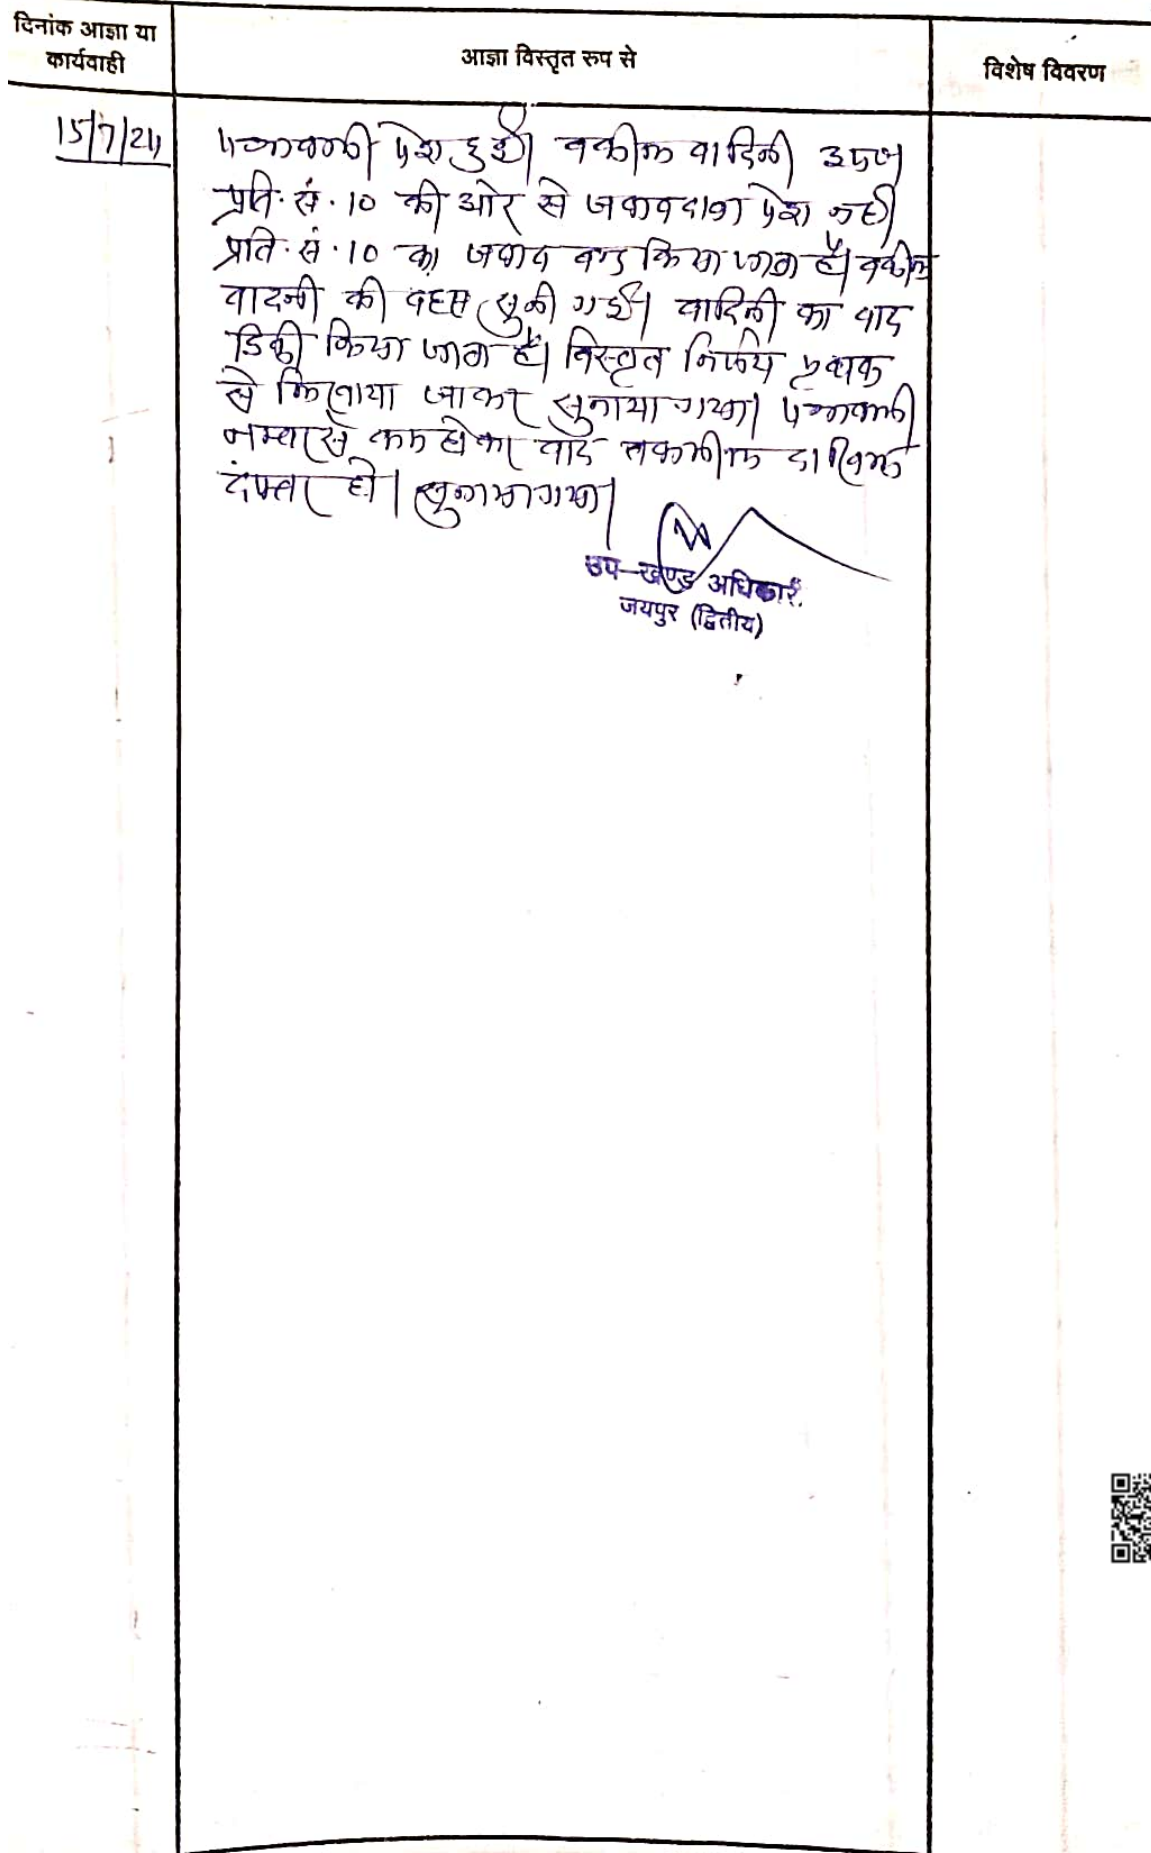 दिनांक आज्ञा या
कार्यवाही
आज्ञा विस्तृत रुप से
विशेष विवरण
15/7/24
पत्रावली पेश हुई। वकील वादिनी उप०
प्रति. सं. 10 की ओर से जवाबदावा पेश नहीं
प्रति. सं. 10 का जवाब बन्द किया जाता है। वकील
वादनी की बहस सुनी गई। वादिनी का वाद
डिक्री किया जाता है। विस्तृत निर्णय पृथक
से लिखाया जाकर सुनाया गया। पत्रावली
नम्बर से कम होकर बाद तकमील दाखिल
दफ्तर हो। सुनाया गया।
उप-खण्ड अधिकारी
जयपुर (द्वितीय)